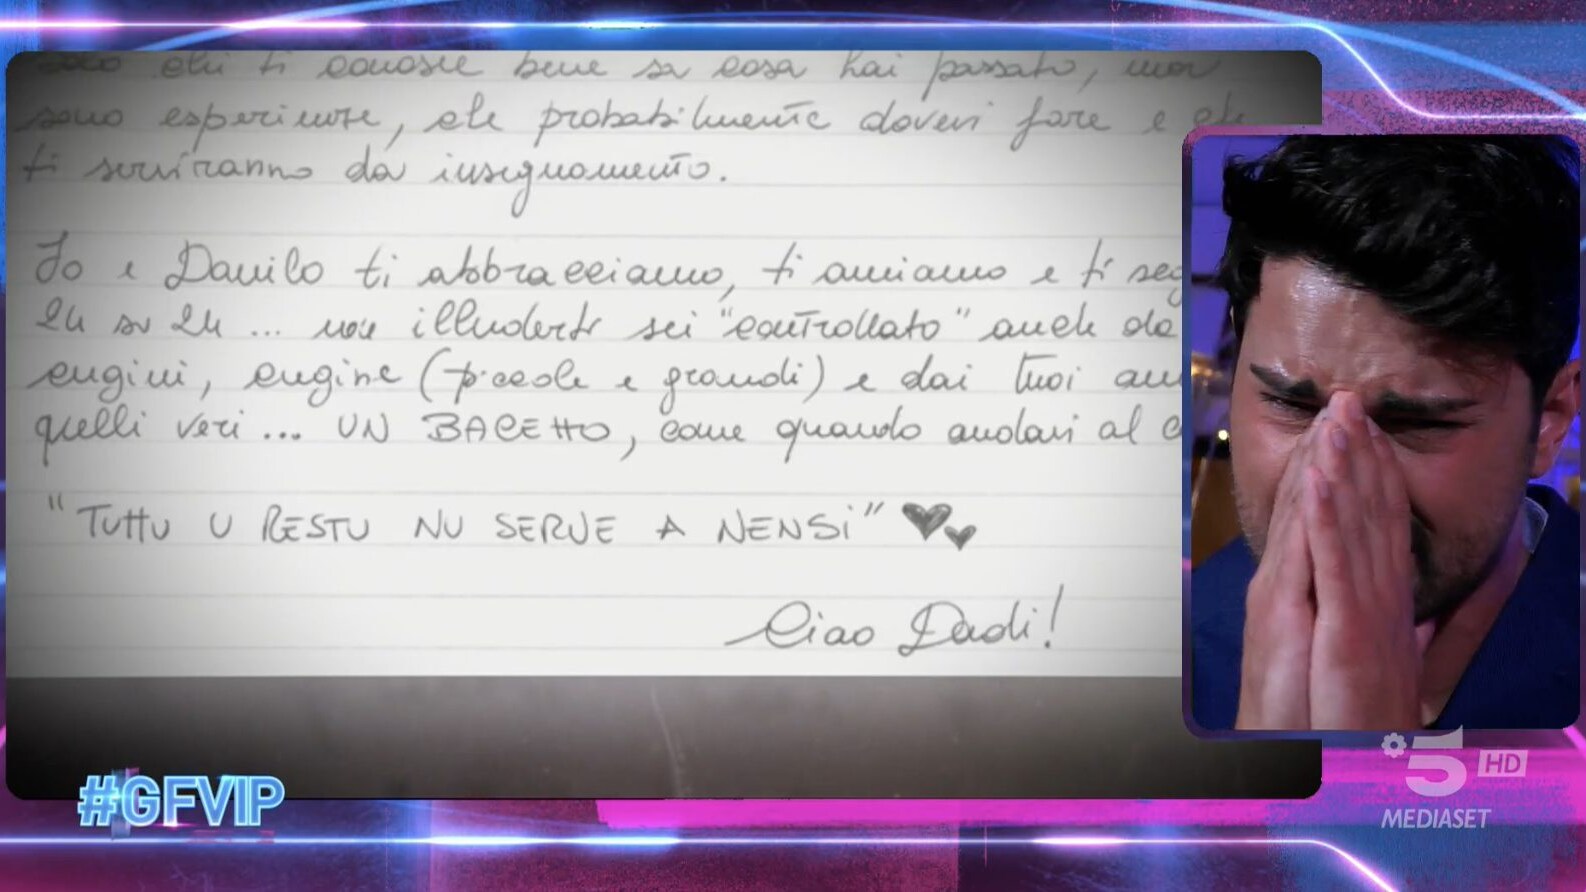 solo chi ti conosce bene sa cosa hai passato, ma
sono esperienze, che probabilmente dovevi fare e che
ti serviranno da insegnamento.
Io e Danilo ti abbracciamo, ti amiamo e ti seg
24 su 24 ... non illuderti sei "controllato" anche da
cugini, cugine (piccole e grandi) e dai tuoi am
quelli veri ... UN BACETTO, come quando andavi al c
"TUTTU U RESTU NU SERVE A NENSi"
Ciao Dadi!
#GFVIP
5 HD
MEDIASET